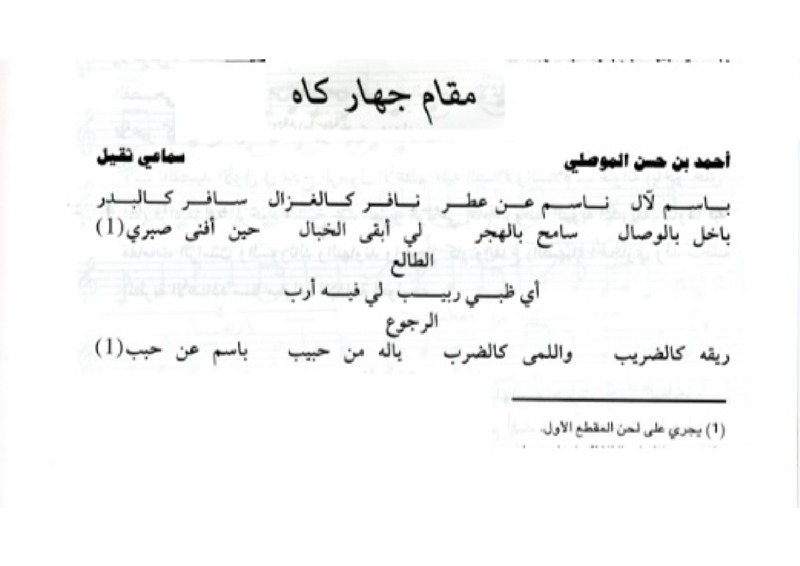 مقام جهار كاه
أحمد بن حسن الموصلي سماعي ثقيل
باسم لآل ناسم عن عطر نافر كالغزال سافر كالبدر
باخل بالوصال سامح بالهجر لي أبقى الخبال حين أفنى صبري (1)
الطالع
أي ظبي ربيب لي فيه أرب
الرجوع
ريقه كالضريب واللمى كالضرب ياله من حبيب باسم عن حبب (1)
(1) يجري على لحن المقطع الأول.